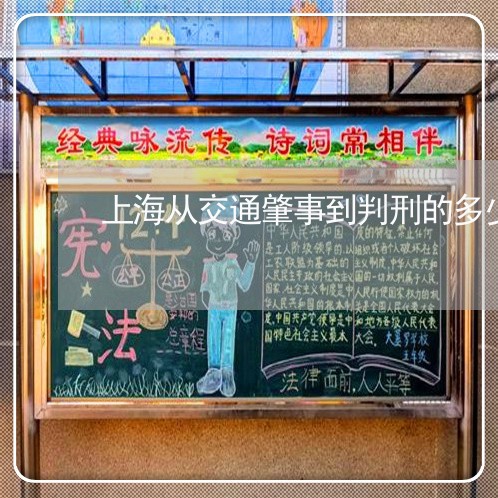 经典咏流传 诗词常相伴
上海从交通肇事到判刑的多少
宪
法
12.4
公平
公正
总章程
中华人民共和国
是工人阶级领导的,以
工农联盟为基础的
人民民主专政的社会主义
国家,社会主义制度是中
华人民共和国的根本制
度,中国共产党领导是中
国特色社会主义最本
质的特征,禁止任何
组织或者个人破坏社会
主义制度,中华人民共和
国的一切权利属于人民,
人民行使国家权力的机
关是全国人民代表大会
和地方各级人民代表
大会.
五年级
法律面前,人人平等